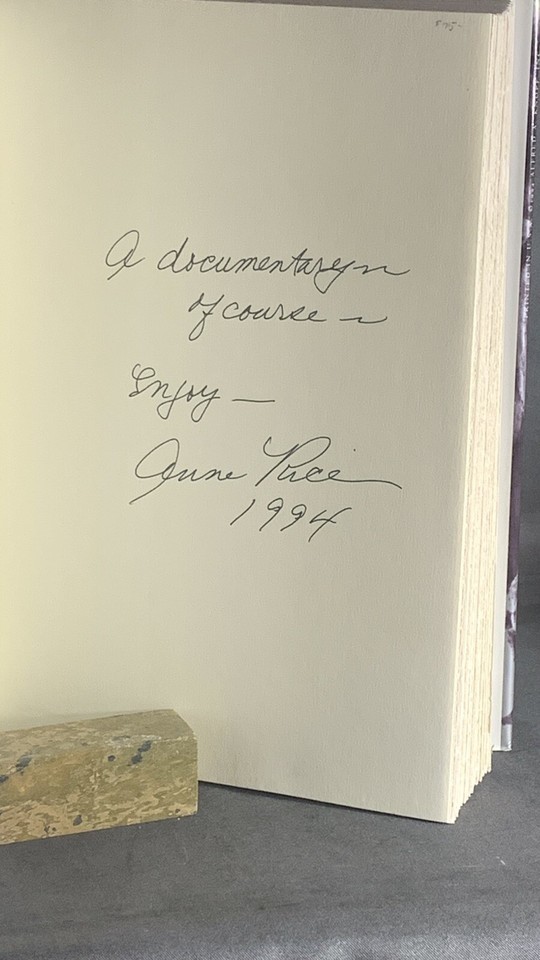 A documentary
of course
Enjoy —
Anne Rice
1994